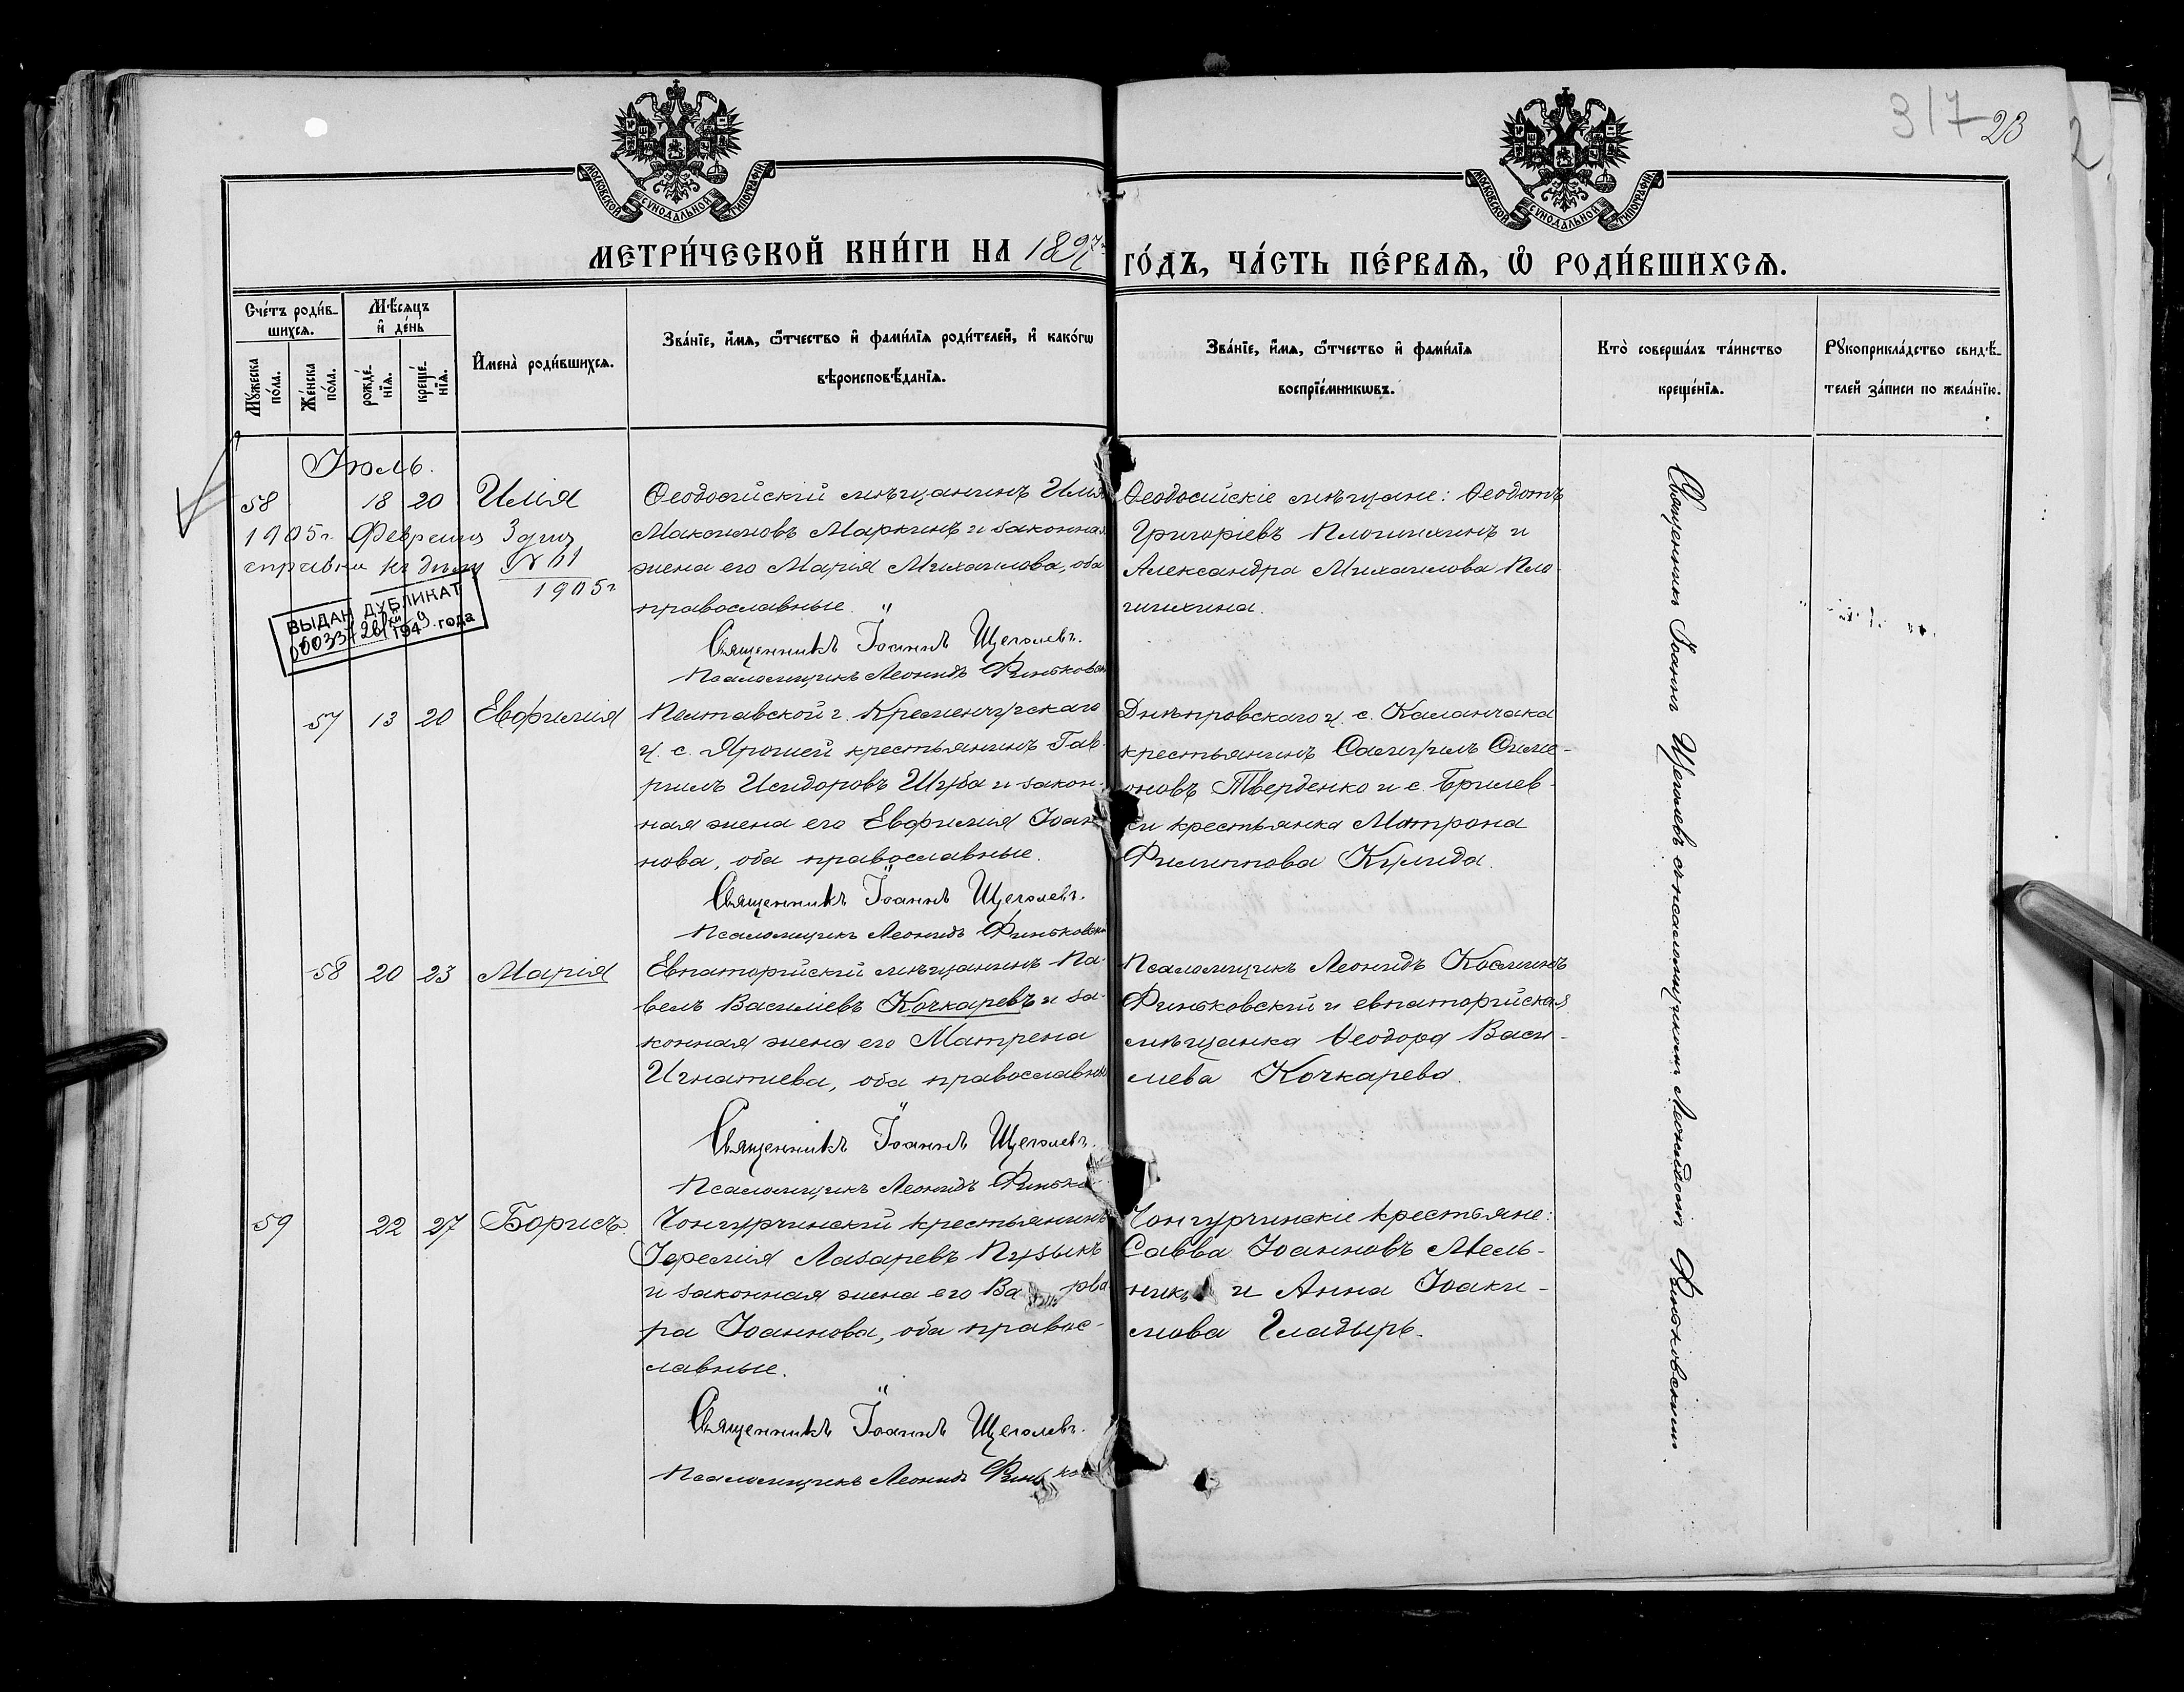 317 23
2
МОСКОВСКОЙ СѴНОДАЛЬНОЙ ТИПОГРАФІИ
МОСКОВСКОЙ СѴНОДАЛЬНОЙ ТИПОГРАФІИ
МЕТРИ́ЧЕСКОЙ КНИ́ГИ НА 1897 ГО́ДЪ, ЧА́СТЬ ПЕ́РВАѦ, Ѡ РОДИ́ВШИХСѦ.
Сче́тъ роди́в-
шихсѧ.
Мꙋ́жеска по́ла.
Же́нска по́ла.
Мѣ́сѧцъ и де́нь
рожде́-нїѧ.
креще́-нїѧ.
Имена̀ роди́вшихсѧ.
Зва́нїе, и́мѧ, ѻ҆́тчество и фами́лїѧ роди́телей, и како́гѡ
вѣроисповѣ́данїѧ.
Зва́нїе, и́мѧ, ѻ҆́тчество и фами́лїѧ
воспрїе́мникѡвъ.
Кто̀ соверша́лъ та́инство
креще́нїѧ.
Рꙋкоприкла́дство свидѣ́-
телей за́писи по жела́нїю.
Іюль.
58 18 20 Илія
Ѳеодосійскій мѣщанинъ Илія
Максимовъ Маркинъ и законная
жена его Марія Михаилова, оба
православные.
Священникъ Іоаннъ Щеголевъ.
Псаломщикъ Леонидъ Финьковскій
Ѳеодосійскіе мѣщане: Ѳеодотъ
Григоріевъ Плошихинъ и
Александра Михаилова Пло-
шихина.
1905г. Февраля 3 дня
справка къ дѣлу №11
1905г
ВЫДАН ДУБЛИКАТ
1949 года
57 13 20 Евфимія
Полтавской г. Кременчугскаго
у. с. Ярошей крестьянинъ Гав-
риилъ Исидоровъ Шуба и закон-
ная жена его Евфимія Іоан-
нова, оба православные.
Священникъ Іоаннъ Щеголевъ.
Псаломщикъ Леонидъ Финьковскій
Днѣпровскаго у. с. Каланчака
крестьянинъ Самуилъ Симе-
оновъ Тверденко и с. Брилев-
ки крестьянка Матрона
Филиппова Кулида.
58 20 23 Марія
Евпаторійскій мѣщанинъ Па-
велъ Василіевъ Кочкаревъ и за-
конная жена его Матрена
Игнатиева, оба православные
Священникъ Іоаннъ Щеголевъ.
Псаломщикъ Леонидъ Финько
Псаломщикъ Леонидъ Косминъ
Финьковскій и евпаторійская
мѣщанка Ѳеодора Васи-
лиева Кочкарева.
59 22 27 Борисъ
Чонгурчинскій крестьянинъ
Іеремія Лазаревъ Пузыкъ
и законная жена его Ва рва-
ра Іоаннова, оба правос-
лавные.
Священникъ Іоаннъ Щеголевъ.
Псаломщикъ Леонидъ Финько
Чонгурчинскіе крестьяне:
Савва Іоанновъ Мель-
никъ и Анна Іоаки-
мова Гладырь.
Священникъ Іоаннъ Щеголевъ съ псаломщикомъ Леонидомъ Финьковскимъ.